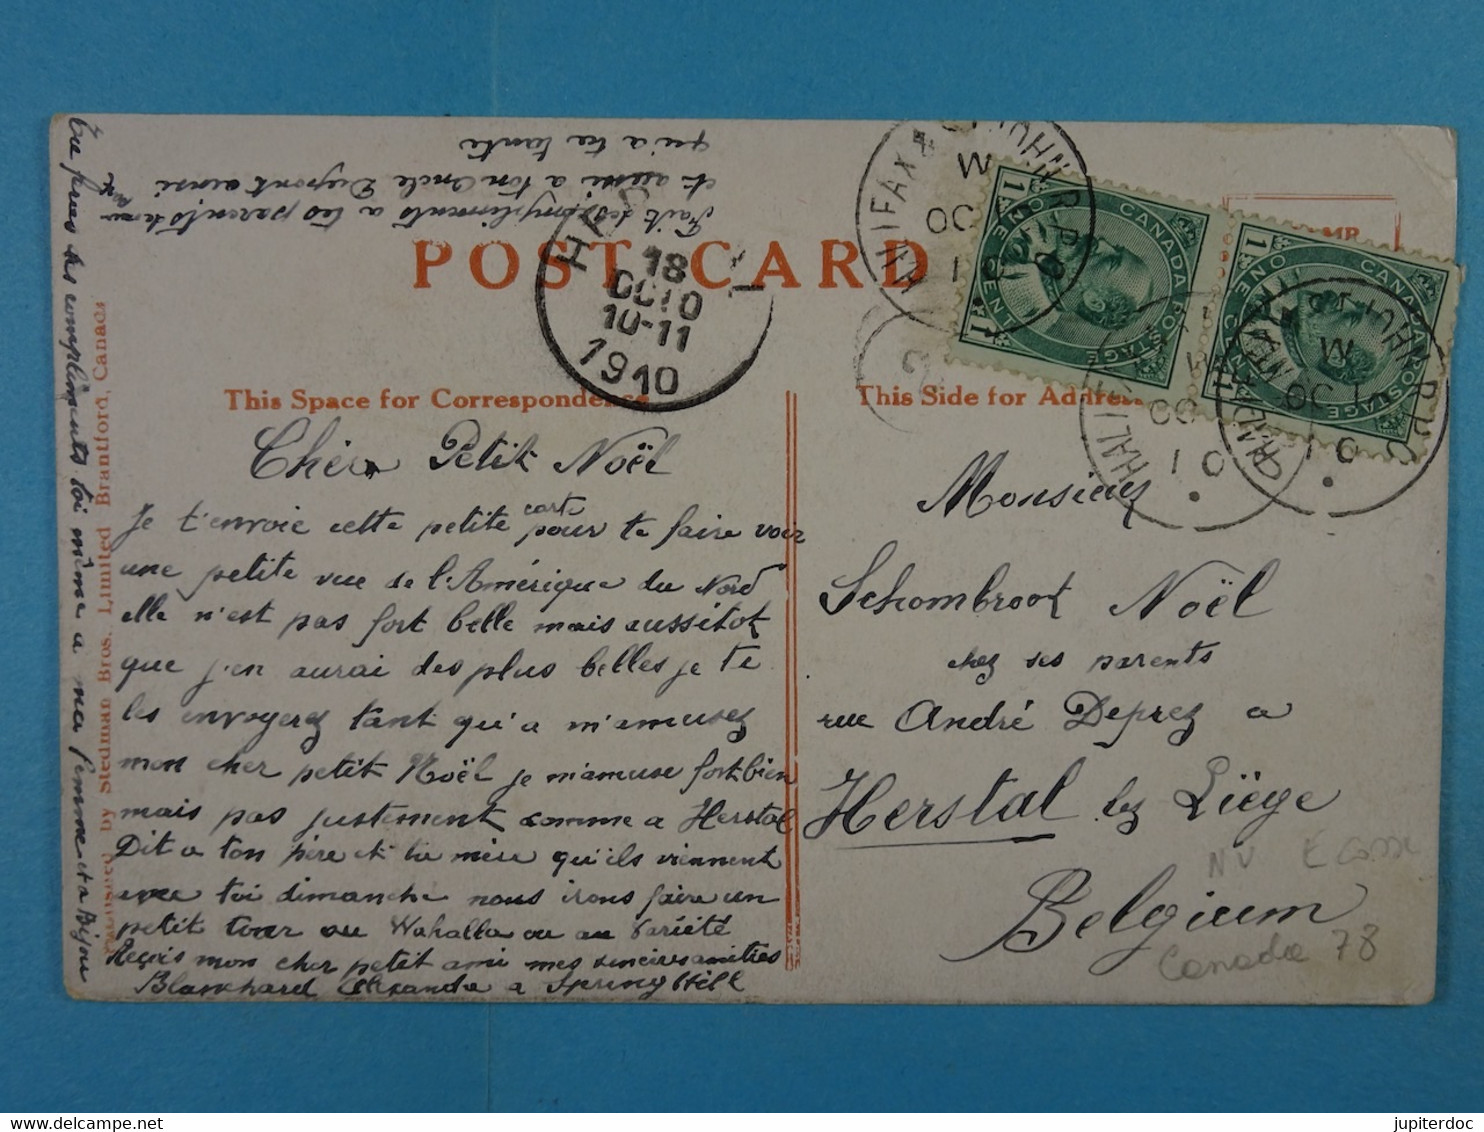 POST CARD
This Space for Correspondence
This Side for Address
Cher Petit Noël
Je t'envoie cette petite carte pour te faire voir
une petite vue de l'Amérique du Nord
elle n'est pas fort belle mais aussitot
que j'en aurai des plus belles je te
les envoyerez tant qu'a m'amusez
mon cher petit Noël je m'amuse fort bien
mais pas justement comme a Herstal
Dit a ton père et ta mère qu'ils viennent
avec toi dimanche nous irons faire un
petit tour au Wahalla ou au Variété
Reçois mon cher petit ami mes sincères amitiés
Blanchard Alexandre a Spring Hill
Fait des compliments a tes parents
et aussi a ton Oncle Dupont ainsi
qu'a ta tante
Tu feras des compliments toi même a ma femme et a Bijou
by Stedman Bros. Limited Brantford, Canada
HERSTAL
18
OCTO
10-11
1910
HALIFAX & ST JOHN R.P.O.
M
OC
10
CANADA POSTAGE
ONE CENT
1
CANADA POSTAGE
ONE CENT
1
Monsieur
Schombroot Noël
chez ses parents
rue André Deprez a
Herstal lez Liège
Belgium
NV Ecosse
Canada 78
jupiterdoc